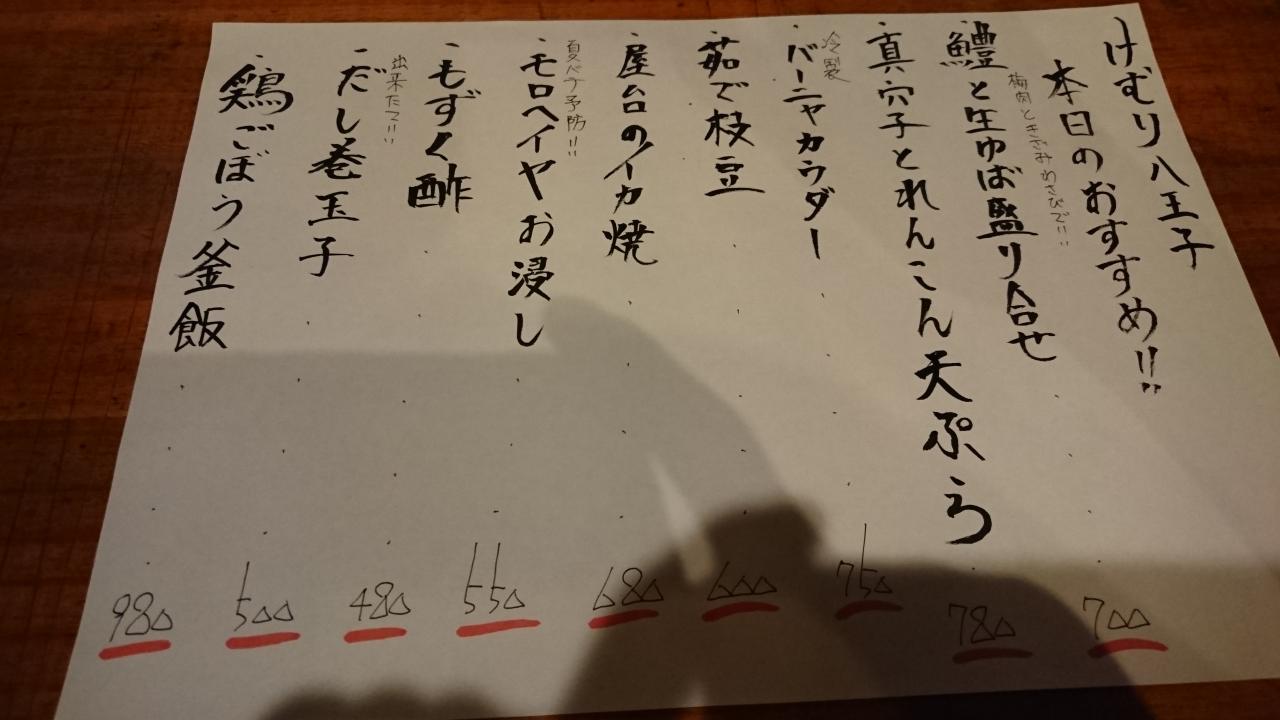 けむり八王子
本日のおすすめ!!
鱧と生ゆば盛り合せ
梅肉ときざみわさびで!!
700
・真穴子とれんこん天ぷら
780
・バーニャカウダー
冷製
750
・茹で枝豆
600
・屋台のイカ焼
680
・モロヘイヤお浸し
夏バテ予防!!
550
・もずく酢
480
・だし巻玉子
出来たて!!
500
・鶏ごぼう釜飯
980